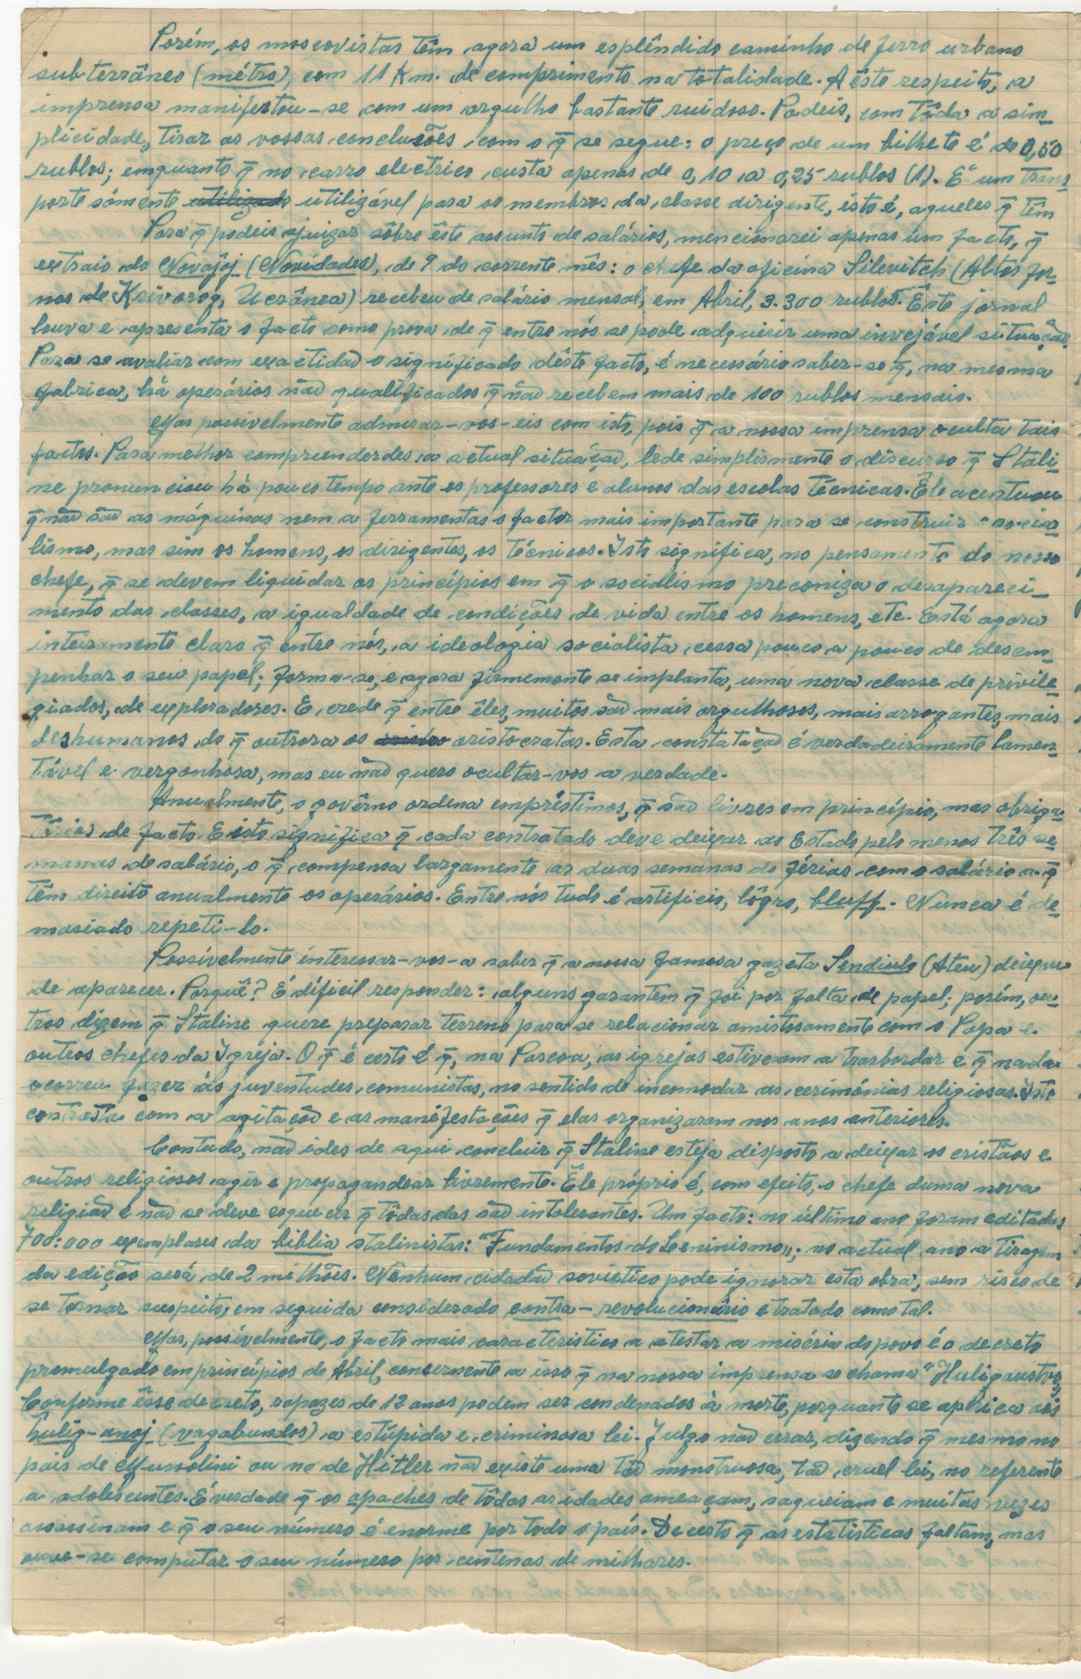 Porém, os moscovistas têm agora um esplêndido caminho de ferro urbano
subterrâneo (métro), com 11 Km. de comprimento na totalidade. A êste respeito, a
imprensa manifestou-se com um orgulho bastante ruidoso. Podeis, com tôda a sim-
plicidade, tirar as vossas conclusões, com o q̄ se segue: o preço de um bilhete é de 0,50
rublos; emquanto q̄ no carro electrico custa apenas de 0,10 a 0,25 rublos (1). É um trans-
porte sómente utilizado utilizável para os membros da classe dirigente, isto é, aqueles q̄ têm
Para q̄ podeis ajuizar sôbre êste assunto de salários, mencionarei apenas um facto, q̄
extraio do Novajoj (Novidades), de 9 do corrente mês: o chefe da oficina Silevitch (Altos for-
nos de Krivorog, Ucrânea) recebeu de salário mensal, em Abril, 3.300 rublos. Êste jornal
louva e apresenta o facto como prova de q̄ entre nós se pode adquirir uma invejável situação.
Para se avaliar com exactidão o significado dêste facto, é necessário saber-se q̄, na mesma
fabrica, há operários não qualificados q̄ não recebem mais de 100 rublos mensais.
Mas possivelmente admirar-vos-eis com isto, pois q̄ a nossa imprensa oculta tais
factos. Para melhor compreenderdes a actual situação, lede simplismente o discurso q̄ Stali-
ne pronunciou há pouco tempo ante os professores e alunos das escolas técnicas. Êle acentuou
q̄ não são as máquinas nem a ferramentas o factor mais importante para se construir o socia-
lismo, mas sim os homens, os dirigentes, os técnicos. Isto significa, no pensamento do nosso
chefe, q̄ se devem liquidar os princípios em q̄ o socialismo preconiza o desapareci-
mento das classes, a igualdade de condições de vida entre os homens, etc. Está agora
inteiramente claro q̄ entre nós, a ideologia socialista cessa pouco a pouco de desem-
penhar o seu papel; forma-se, e agora firmemente se implanta, uma nova classe de privile-
giados, de exploradores. E crede q̄ entre êles, muitos são mais orgulhosos, mais arrogantes, mais
deshumanos do q̄ outrora os aristocratas. Esta constatação é verdadeiramente lamen-
tável e vergonhosa, mas eu não quero ocultar-vos a verdade.
Anualmente, o govêrno ordena empréstimos, q̄ são livres em princípio, mas obriga-
tórios de facto. E isto significa q̄ cada contratado deve deixar ao Estado pelo menos três se-
manas de salário, o q̄ compensa largamente as duas semanas de férias com o salário a q̄
têm direito anualmente os operários. Entre nós tudo é artifício, lôgro, bluff. Nunca é de-
masiado repeti-lo.
Possívelmente interessar-vos-a saber q̄ a nossa famosa gazeta Sendiulo (Ateu) deixou
de aparecer. Porquê? É difícil responder: alguns garantem q̄ foi por falta de papel; porém, ou-
tros dizem q̄ Staline quere preparar terreno para se relacionar amistosamente com o Papa e
outros chefes da Igreja. O q̄ é certo é q̄, na Pascoa, as igrejas estiveram a trasbordar e q̄ nada
ocorreu fazer às juventudes comunistas, no sentido de incomodar as cerimónias religiosas. Isto
contrasta com a agitação e as manifestações q̄ elas organizaram nos anos anteriores.
Contudo, não ides de aqui concluir q̄ Staline esteja disposto a deixar os cristãos e
outros religiosos agir e propagandear livremente. Êle próprio é, com efeito, o chefe duma nova
religião e não se deve esquecer q̄ tôdas elas são intolerantes. Um facto: no último ano foram editados
700:000 exemplares da biblia stalinista: "Fundamentos do Leninismo"; no actual ano a tiragem
da edição será de 2 milhões. Nenhum cidadão soviético pode ignorar esta obra, sem risco de
se tornar suspeito, em seguida considerado contra-revolucionário e tratado como tal.
Mas, possívelmente, o facto mais caracteristico a atestar a miséria do povo é o decreto
promulgado em princípios de Abril, concernente a isso q̄ na nossa imprensa se chama "Huliganstvo".
Conforme êsse decreto, rapazes de 12 anos podem ser condenados à morte, porquanto se aplica aos
hulig-anoj (vagabundos) a estúpida e criminosa lei. Julgo não errar, dizendo q̄ mesmo no
país de Mussolini ou no de Hitler não existe uma tão monstruosa, tão cruel lei, no referente
a adolescentes. É verdade q̄ os apaches de tôdas as idades ameaçam, saqueiam e muitas vezes
assassinam e q̄ o seu número é enorme por todo o país. De certo q̄ as estatisticas faltam, mas
ouve-se computar o seu número por centenas de milhares.